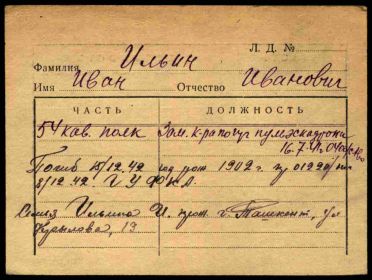 Л. Д. №
Фамилия Ильин
Имя Иван Отчество Иванович
ЧАСТЬ ДОЛЖНОСТЬ
54 кав. полк Зам. к-ра по пулм эскадрона
16.7.42,
Погиб 15/12.42 год рож 1902 г.
8/12.42. Г У Ф К А.
Семья Ильина И. прож. г. Ташкент,
Курылова, 19